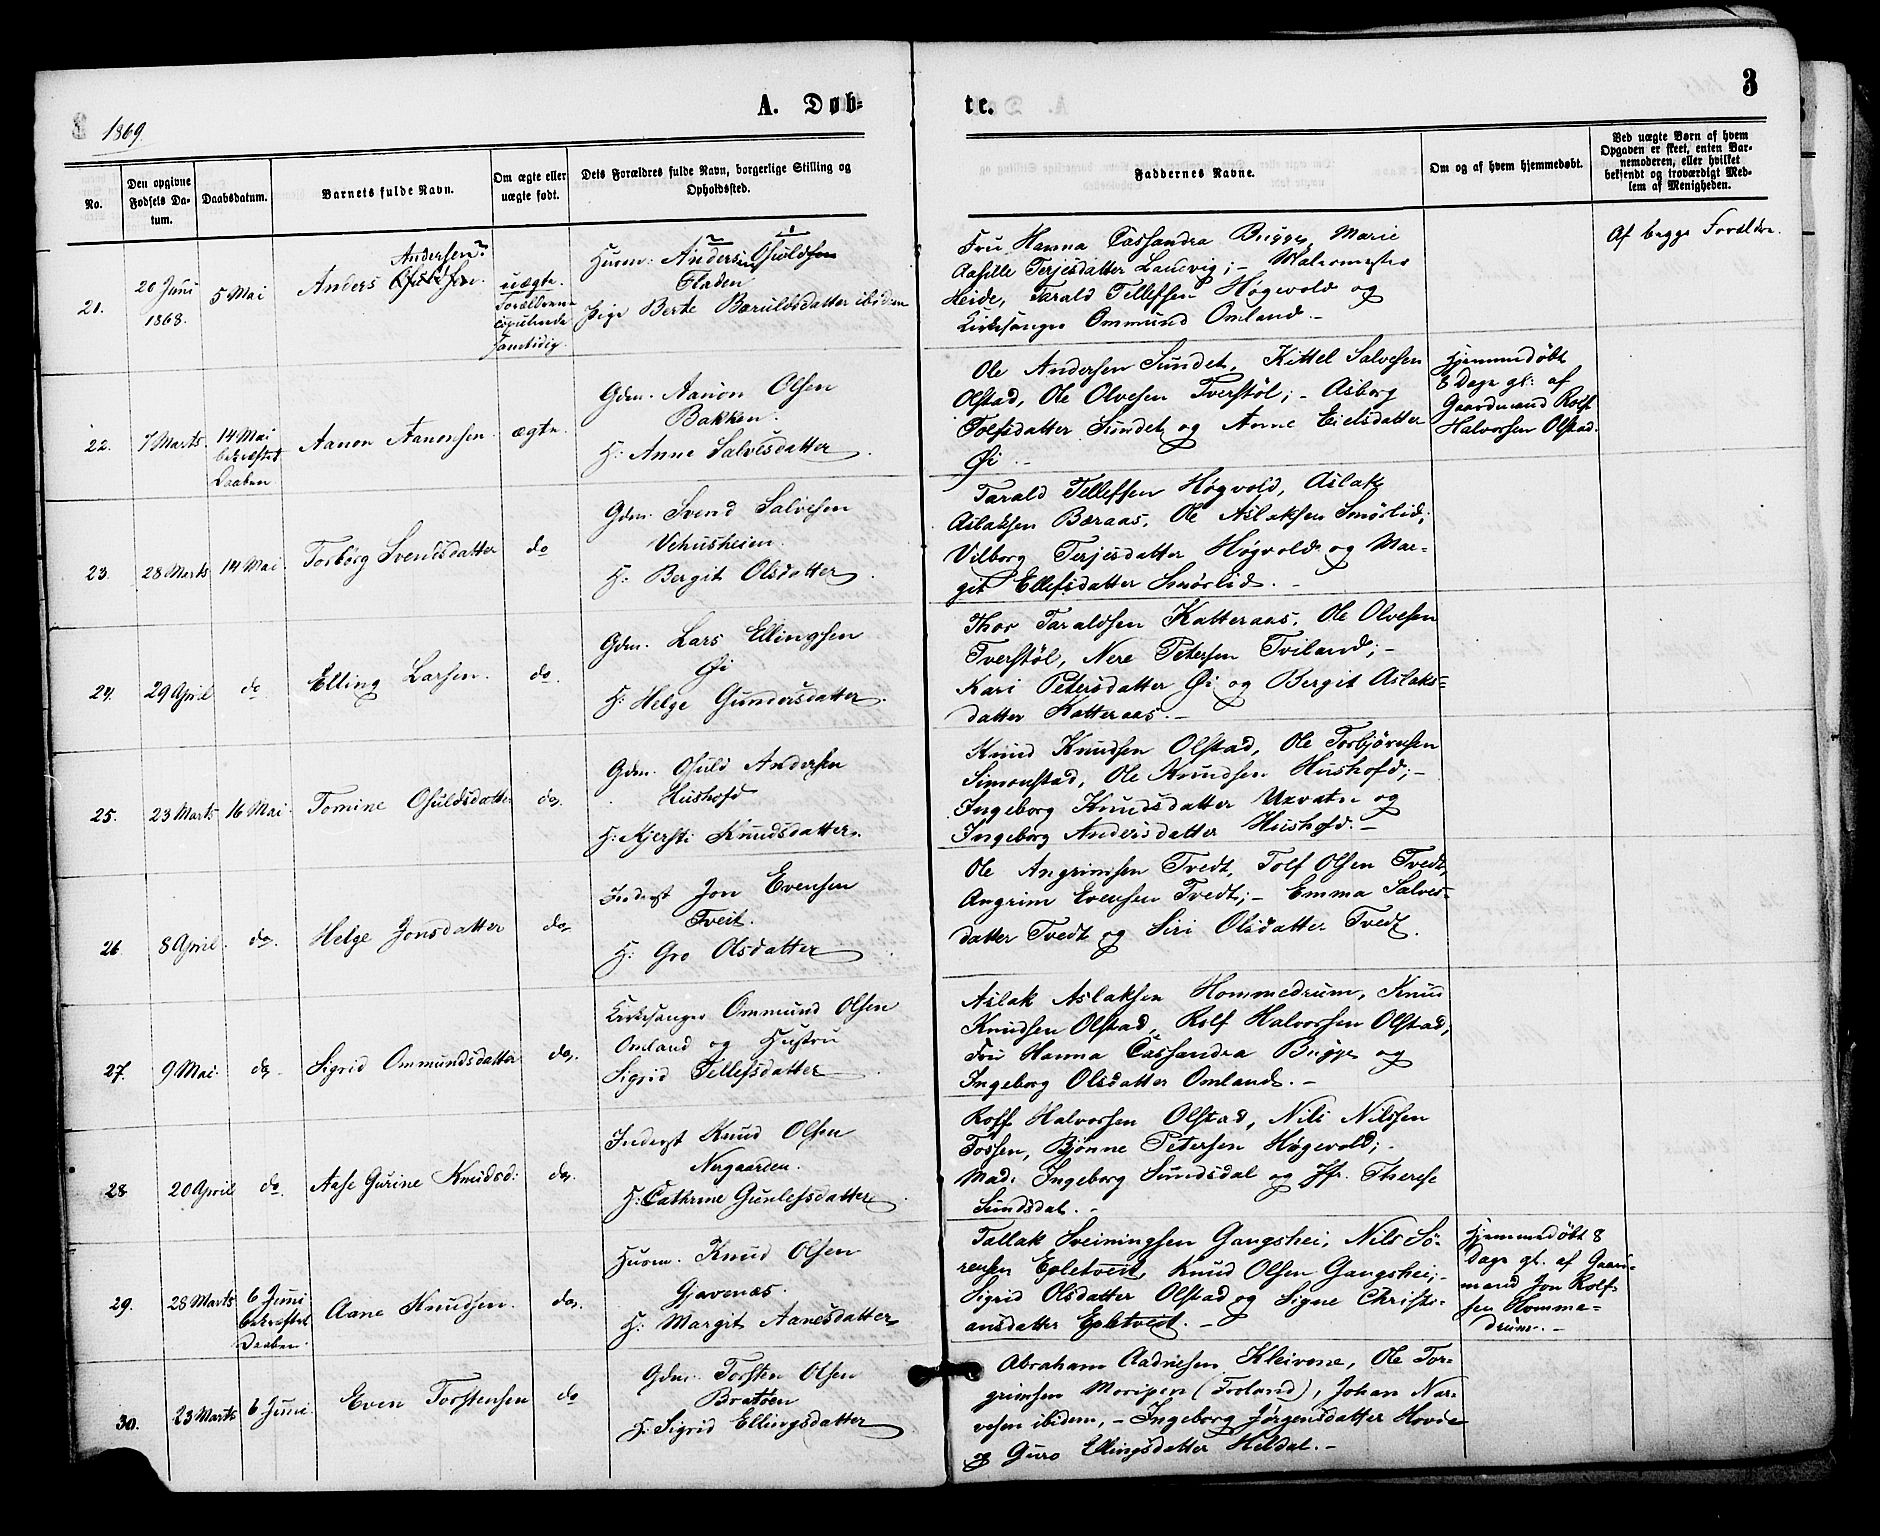 3
1869.
A. Døb-
te.
No.
Den opgivne Fødsels Datum.
Daabsdatum.
Barnets fulde Navn.
Om ægte eller uægte født.
Dets Forældres fulde Navn, borgerlige Stilling og Opholdssted.
Faddernes Navne.
Om og af hvem hjemmedøbt.
Ved uægte Børn af hvem Opgaven er skeet, enten Barnemoderen, eller hvilket bekjendt og troværdigt Medlem af Menigheden.
21.
20 Juni
1868.
5 Mai
Andersen
Anders
uægte.
Forældrene
Samtidig.
Huusm. Anders Osuldsen
Fladen
Pige Berte Baruldsdatter ibidem
Fru Hanna Cassandra Bugge, Marie
Aasille Terjesdatter Lauvvig; - Malermester
Heide, Tarald Tellefsen Høgevold og
Kirkesanger Ommund Omland. -
Af begge Forældre.
22.
7 Marts
14 Mai
bekræftet
Daaben
Aanon Aanonsen
ægte.
Gdm. Aanon Olsen
Bakken.
H: Anne Salvesdatter
Ole Andersen Sundet, Kittel Salvesen
Olstad, Ole Olvesen Tverstøl; - Asborg
Tolfsdatter Sundet og Anne Eielsdatter
Øi -
Hjemmedøbt
8 Dage gl. af
Gaardmand Rolf
Halvorsen Olstad.
23.
28 Marts
14 Mai
Torbørg Svendsdatter
do
Gdm. Svend Salvesen
Vehusheien.
H: Bergit Olsdatter
Tarald Tellefsen Høgvold, Aslak
Aslaksen Bæraas, Ole Aslaksen Smørlid;
Vilborg Terjesdatter Høgvold og Mar-
git Ellefsdatter Smørlid. -
24.
29 April
do
Elling Larsen.
do.
Gdm. Lars Ellingsen
Øi
H: Helge Gundersdatter.
Thor Taraldsen Katteraas, Ole Olvesen
Tverstøl, Nere Petersen Tviland; -
Kari Petersdatter Øi og Bergit Aslaks-
datter Katteraas. -
25.
23 Marts
16 Mai
Tomine Osuldsdatter
do.
Gdm. Osuld Andersen
Hushofd
H: Kjersti Knudsdatter.
Knud Knudsen Olstad, Ole Torbjørnsen
Simonstad, Ole Knudsen Hushofd; -
Ingeborg Knudsdatter Uxvatn og
Ingeborg Andersdatter Hushofd. -
26.
8 April
do.
Helge Jonsdatter
do.
Inderst Jon Evensen
Tveit.
H: Gro Olsdatter
Ole Angrimsen Tvedt, Tolf Olsen Tvedt,
Angrim Evensen Tvedt; - Emma Salves-
datter Tvedt og Siri Olsdatter Tvedt.
27.
9 Mai.
do.
Sigrid Ommundsdatter
do.
Kirkesanger Ommund Olsen
Omland og Hustru
Sigrid Tellefsdatter
Aslak Aslaksen Hommedrum, Knud
Knudsen Olstad, Rolf Halvorsen Olstad,
Fru Hanna Cassandra Bugge og
Ingeborg Olsdatter Omland. -
28.
20 April
do.
Aase Gurine Knudsd:
do.
Inderst Knud Olsen
Nergaarden.
H: Cathrine Gunlefsdatter
Rolf Halvorsen Olstad, Nils Nilssen
Fossen, Bjønne Petersen Høgevold; -
Mad. Ingeborg Sundsdal og Jfr. Therese
Sundsdal. -
29.
28 Marts
6 Juni
bekræftet
Daaben.
Aane Knudsen.
do.
Huusm. Knud Olsen
Gjavenæs.
H: Margit Aanesdatter
Tallak Sveiningsen Gangshei, Nils Sø-
rensen Epletveit, Knud Olsen Gangshei; -
Sigrid Olsdatter Olstad og Signe Christi-
ansdatter Epletveit. -
Hjemmedøbt 8
Dage gl. af Gaard-
mand Jon Rolf-
sen Homme-
drum. -
30.
23 Marts
6 Juni.
Even Torstensen
do
Gdm. Torsten Olsen
Bratøen
H: Sigrid Ellingsdatter
Abraham Aadnesen Kleivene, Ole Tor-
grimsen Moripen (Froland), Johan Nar-
vesen ibidem, - Ingeborg Jørgensdatter Hovde
og Guro Ellingsdatter Heldal. -